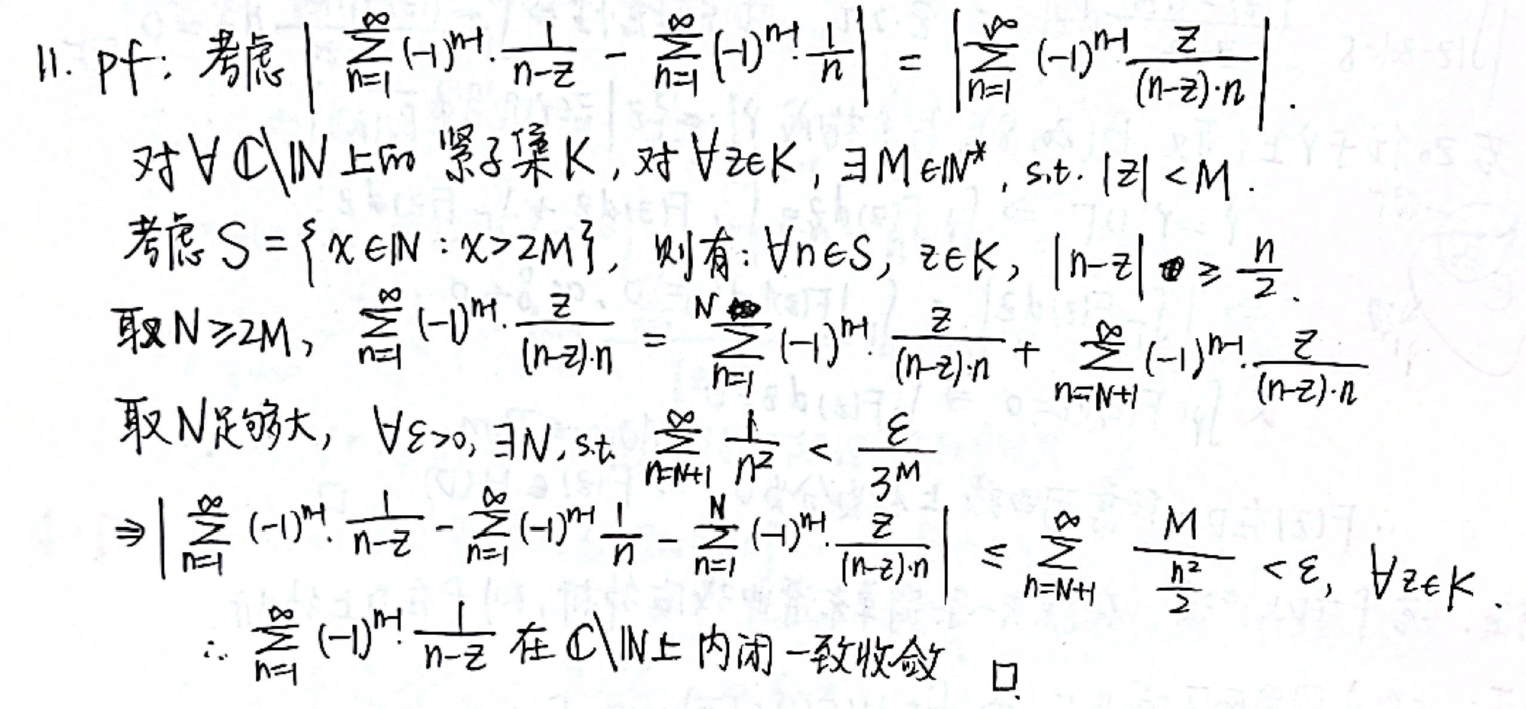 11. pf: 考虑 | ∑_{n=1}^{∞} (-1)^{n-1}·\frac{1}{n-z} - ∑_{n=1}^{∞} (-1)^{n-1}·\frac{1}{n} | = | ∑_{n=1}^{∞} (-1)^{n-1} \frac{z}{(n-z)·n} |.
对∀ ℂ\ℕ 上的 紧子集 K, 对 ∀z∈K, ∃M∈ℕ*, s.t. |z| < M.
考虑 S = { x∈ℕ : x>2M }, 则有: ∀n∈S, z∈K, |n-z| ≥ \frac{n}{2}.
取 N≥2M, ∑_{n=1}^{∞} (-1)^{n-1}·\frac{z}{(n-z)·n} = ∑_{n=1}^{N} (-1)^{n-1}·\frac{z}{(n-z)·n} + ∑_{n=N+1}^{∞} (-1)^{n-1}·\frac{z}{(n-z)·n}
取N足够大, ∀ε>0, ∃N, s.t. ∑_{n=N+1}^{∞} \frac{1}{n^2} < \frac{ε}{3M}
⇒ | ∑_{n=1}^{∞} (-1)^{n-1}·\frac{1}{n-z} - ∑_{n=1}^{∞} (-1)^{n-1} \frac{1}{n} - ∑_{n=1}^{N} (-1)^{n-1}·\frac{z}{(n-z)·n} | ≤ ∑_{n=N+1}^{∞} \frac{M}{\frac{n^2}{2}} < ε, ∀z∈K.
∴ ∑_{n=1}^{∞} (-1)^{n-1}·\frac{1}{n-z} 在 ℂ\ℕ上 内闭一致收敛 □.